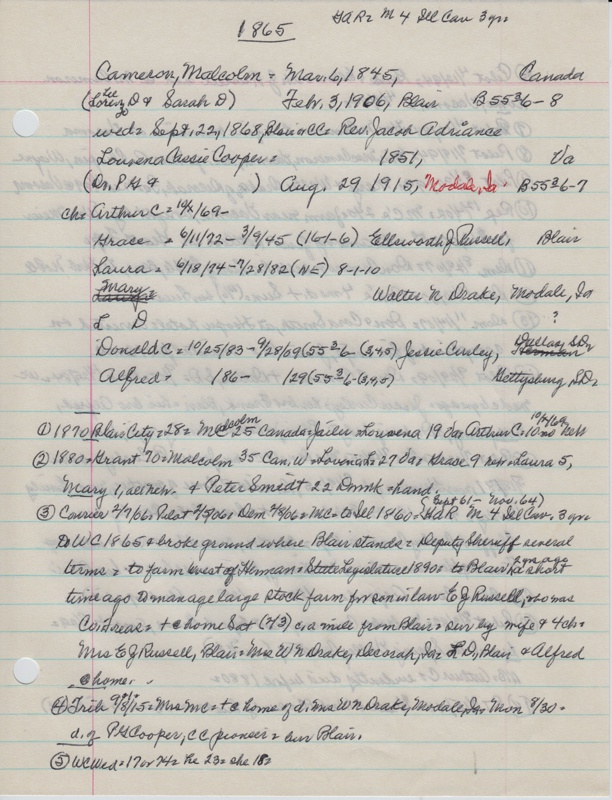 H & R = M 4 Ill Cav 3 yrs
1865
Cameron, Malcolm = Mar. 6, 1845, Canada
(Lorenzo D & Sarah D) Feb. 3, 1906, Blair B 55 3 6-8
Lee
wed = Sept. 22, 1868, Blair = CC = Rev. Jacob Adriance
Louvena Cassie Cooper = 1851, Va
(Dr. P H & ) Aug. 29 1915, Modale, Ia B 55 3 6-7
ch = Arthur C = /69-
Grace = 6/11/72 - 3/9/45 (161-6) Ellsworth J Russell, Blair
Laura = 6/18/74 - 7/28/82 (NE) 8-1-10
Mary
Walter N Drake, Modale, Ia
L D ?
Donald C = 10/25/83 - 9/28/09 (55 3 6-(3,4,5) Jessie Curley, Dallas, SD
Alfred = 186- /29 (55 3 6-(3,4,5) Gettysburg, SD
① 1870 Blair City = 28 = Malcolm 25 Canada = Jailer = Louvena 19 Va = Arthur C = 10 mo Neb 10/x/69
② 1880 = Grant 70 = Malcolm 35 Can. W = Louvina L = 27 Va = Grace 9 Neb = Laura 5,
Mary 1, all Neb. & Peter Smidt 22 Dnmk = hand.
(Sept 61 - Nov. 64)
③ Courier 2/7/06; Pilot 2/7/06 = Dem 2/8/06 = Mc = to Ill 1860 = H & R M 4 Ill Cav. 3 yrs
to WC 1865 & broke ground where Blair stands = Deputy Sheriff several
terms = to farm west of Herman = State Legislature 1890s = to Blair a short
time ago to manage large stock farm for son in law E J Russell, who was
Co. Treas = + @ home Sat (2/3) c. a mile from Blair = surv by wife & 4 ch =
Mrs E J Russell, Blair = Mrs W N Drake, Decorah, Ia = L D, Blair & Alfred
@ home.
④ Trib 9/8/15 = Mrs Mc = + @ home of d. Mrs W N Drake, Modale, Ia = Mon 8/30 =
d. of P H Cooper, CC pioneer = bur Blair.
⑤ WC Wed = 17 or 74 = he 23 = she 18 =